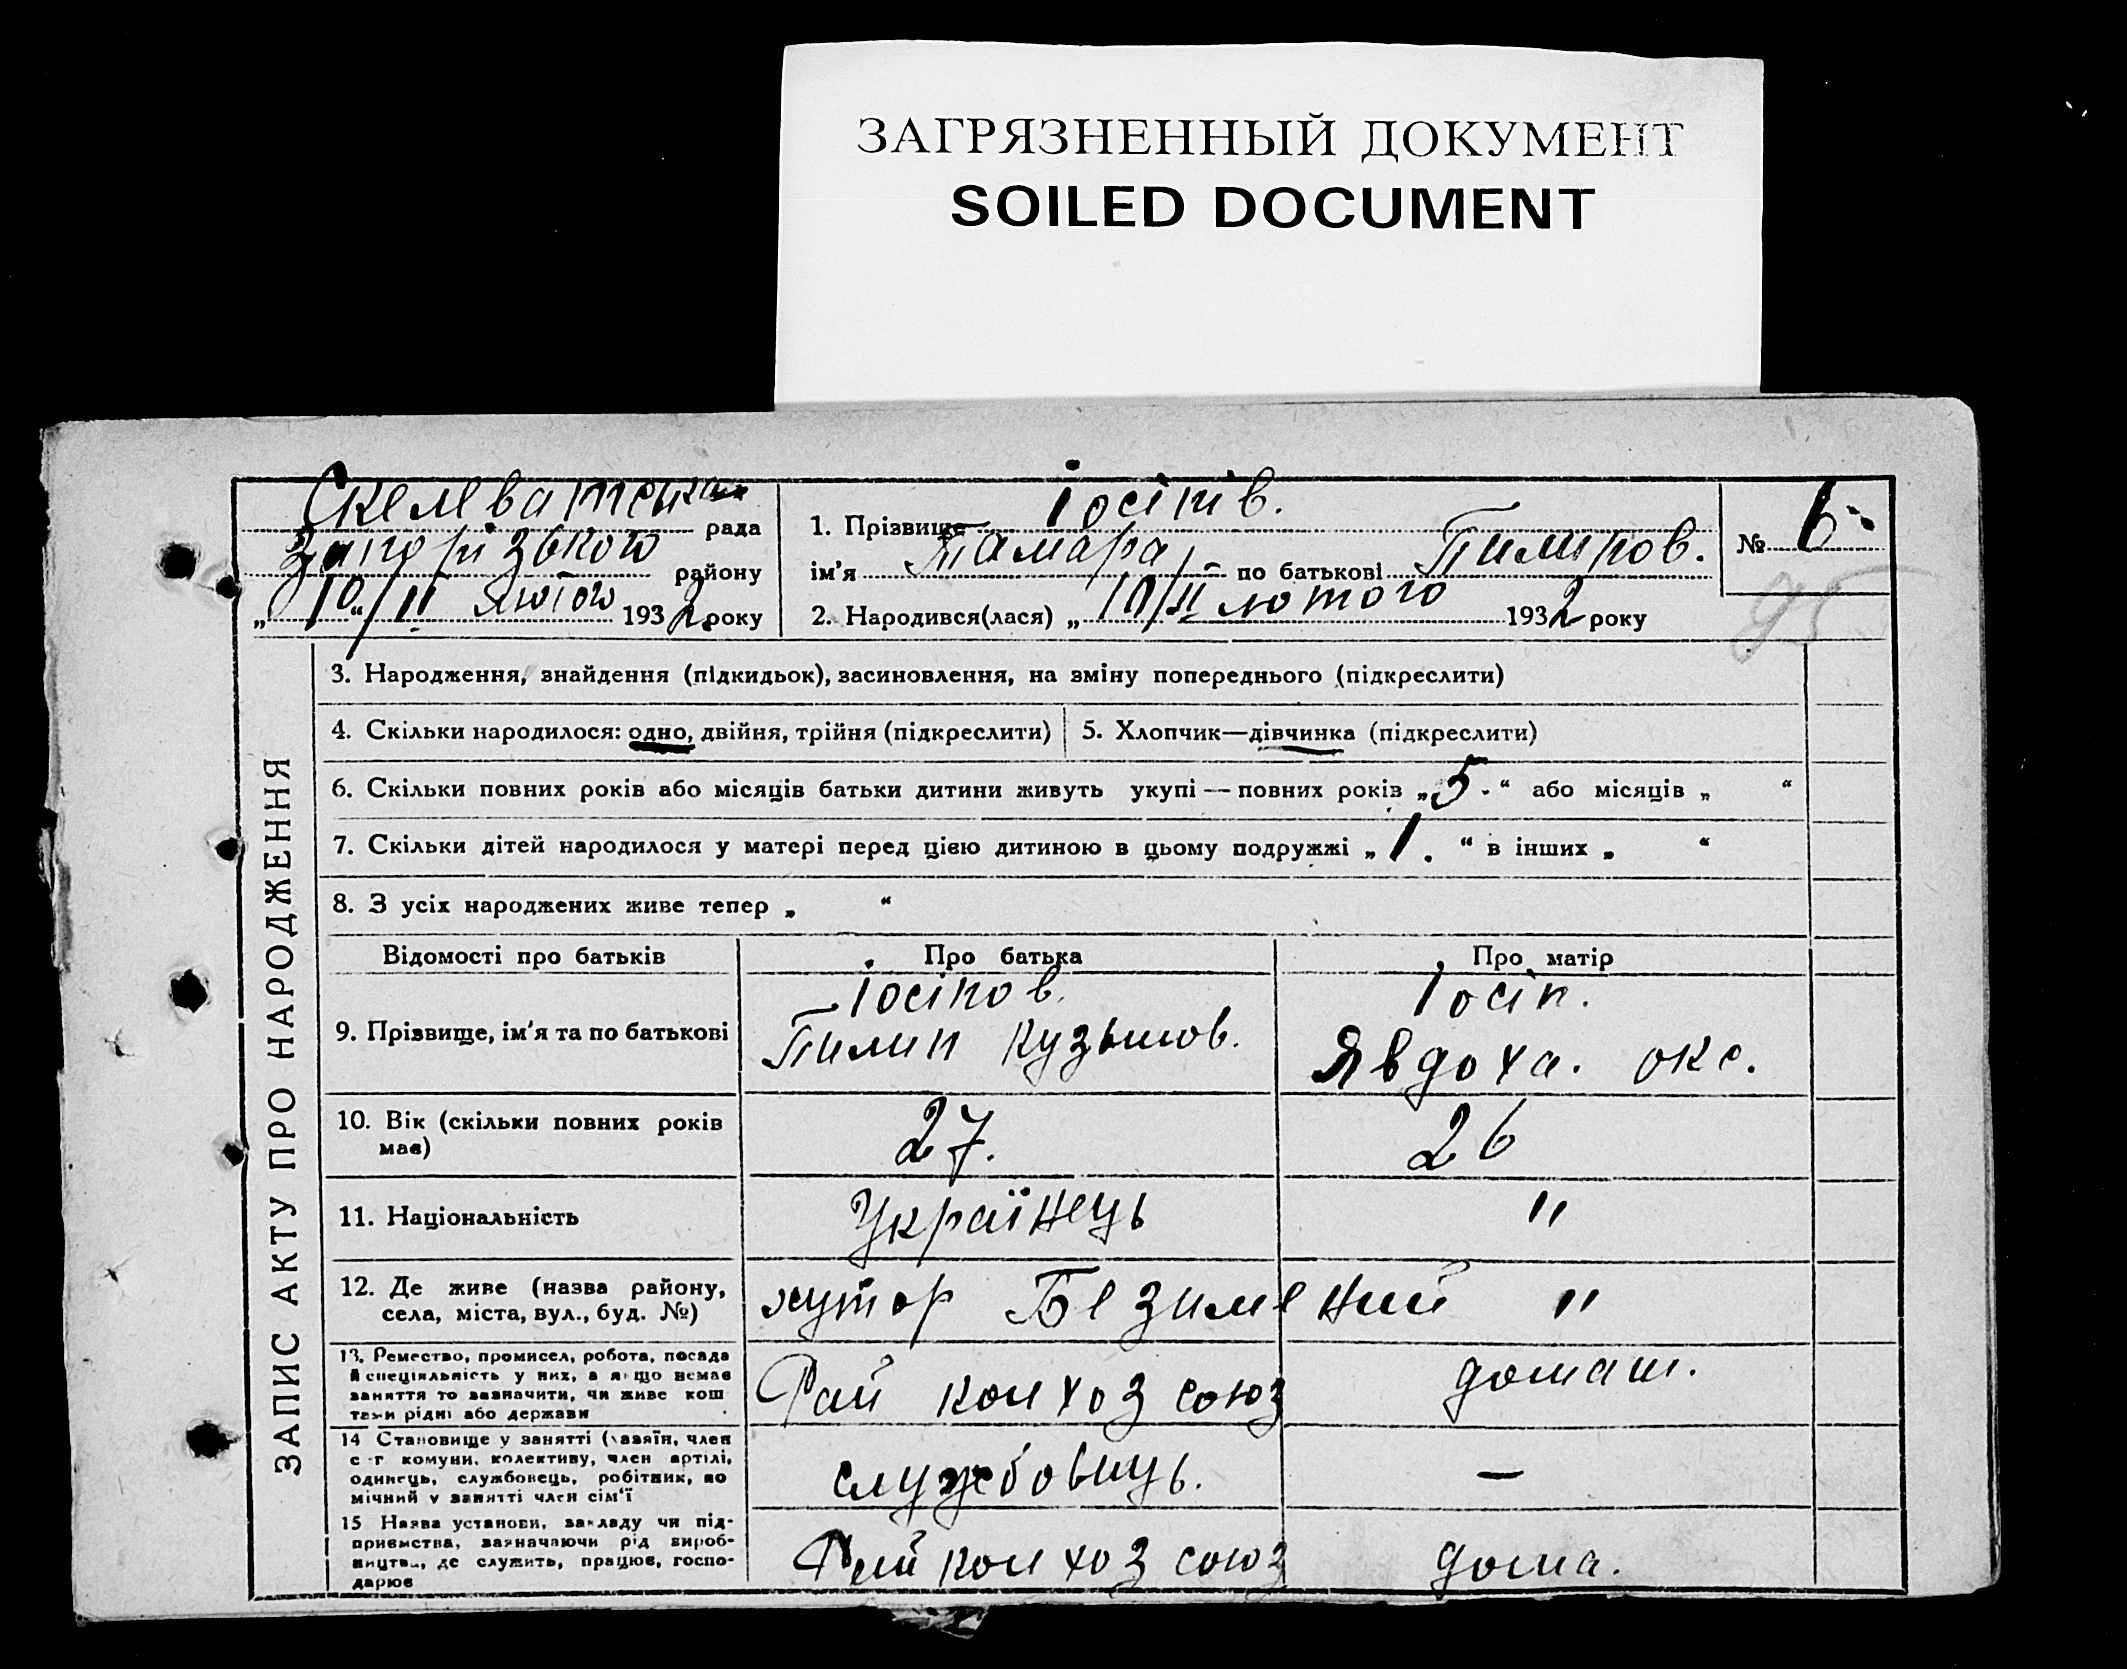 ЗАГРЯЗНЕННЫЙ ДОКУМЕНТ
SOILED DOCUMENT
Скелеватська рада
Запорізького району
„10“/II лютого 1932 року
1. Прізвище Іосіпів.
ім'я Тамара по батькові Пилипов.
2. Народився(лася) „10/II лютого 1932 року
№ 6
95
ЗАПИС АКТУ ПРО НАРОДЖЕННЯ
3. Народження, знайдення (підкидьок), засиновлення, на зміну попереднього (підкреслити)
4. Скільки народилося: одно, двійня, трійня (підкреслити)
5. Хлопчик—дівчинка (підкреслити)
6. Скільки повних років або місяців батьки дитини живуть укупі — повних років „5.“ або місяців „ “
7. Скільки дітей народилося у матері перед цією дитиною в цьому подружжі „1.“ в інших „ “
8. З усіх народжених живе тепер „ “
Відомості про батьків
Про батька
Про матір
9. Прізвище, ім'я та по батькові
Іосіпов.
Пилип Кузьмов.
Іосіп.
Явдоха. окс.
10. Вік (скільки повних років
має)
27.
26
11. Національність
Українець
"
12. Де живе (назва району,
села, міста, вул., буд. №)
хутор Безимений "
13. Ремество, промисел, робота, посада
й спеціяльність у них, а якщо немає
заняття то зазначити, чи живе кош
тами рідні або держави
Рай колхоз союз
домаш.
14 Становище у занятті (хазяїн, член
с-г комуни, колективу, член артілі,
одинець, службовець, робітник, по
мічний у занятті член сім'ї
службовець.
—
15 Назва установи, закладу чи під-
приємства, зазначаючи рід вироб-
ництва, де служить, працює, госпо-
дарює
Рай колхоз союз
дома.